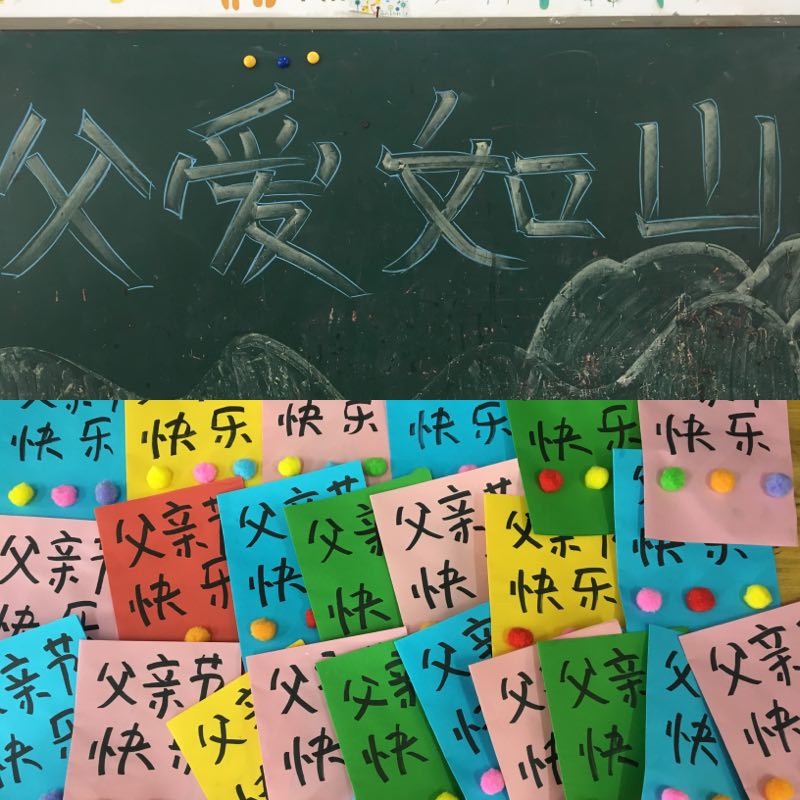 父爱如山
快乐
快乐
快乐
快乐
快乐
快乐
父亲节
快乐
父亲节
快乐
父亲节
快
父亲
快
父亲
快
父亲节
快乐
快乐
父亲节
快乐
父亲节
快
父
快
父
快
父亲
快
父亲
快
父
快
父亲
快
父
快
父亲节
快